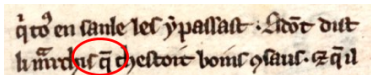 q̃ toꝰ en saule les ẏ passast · Li dor̃ dist
li marchis q̄ chestoit boins ꝯsaus · ⁊ q̃ il